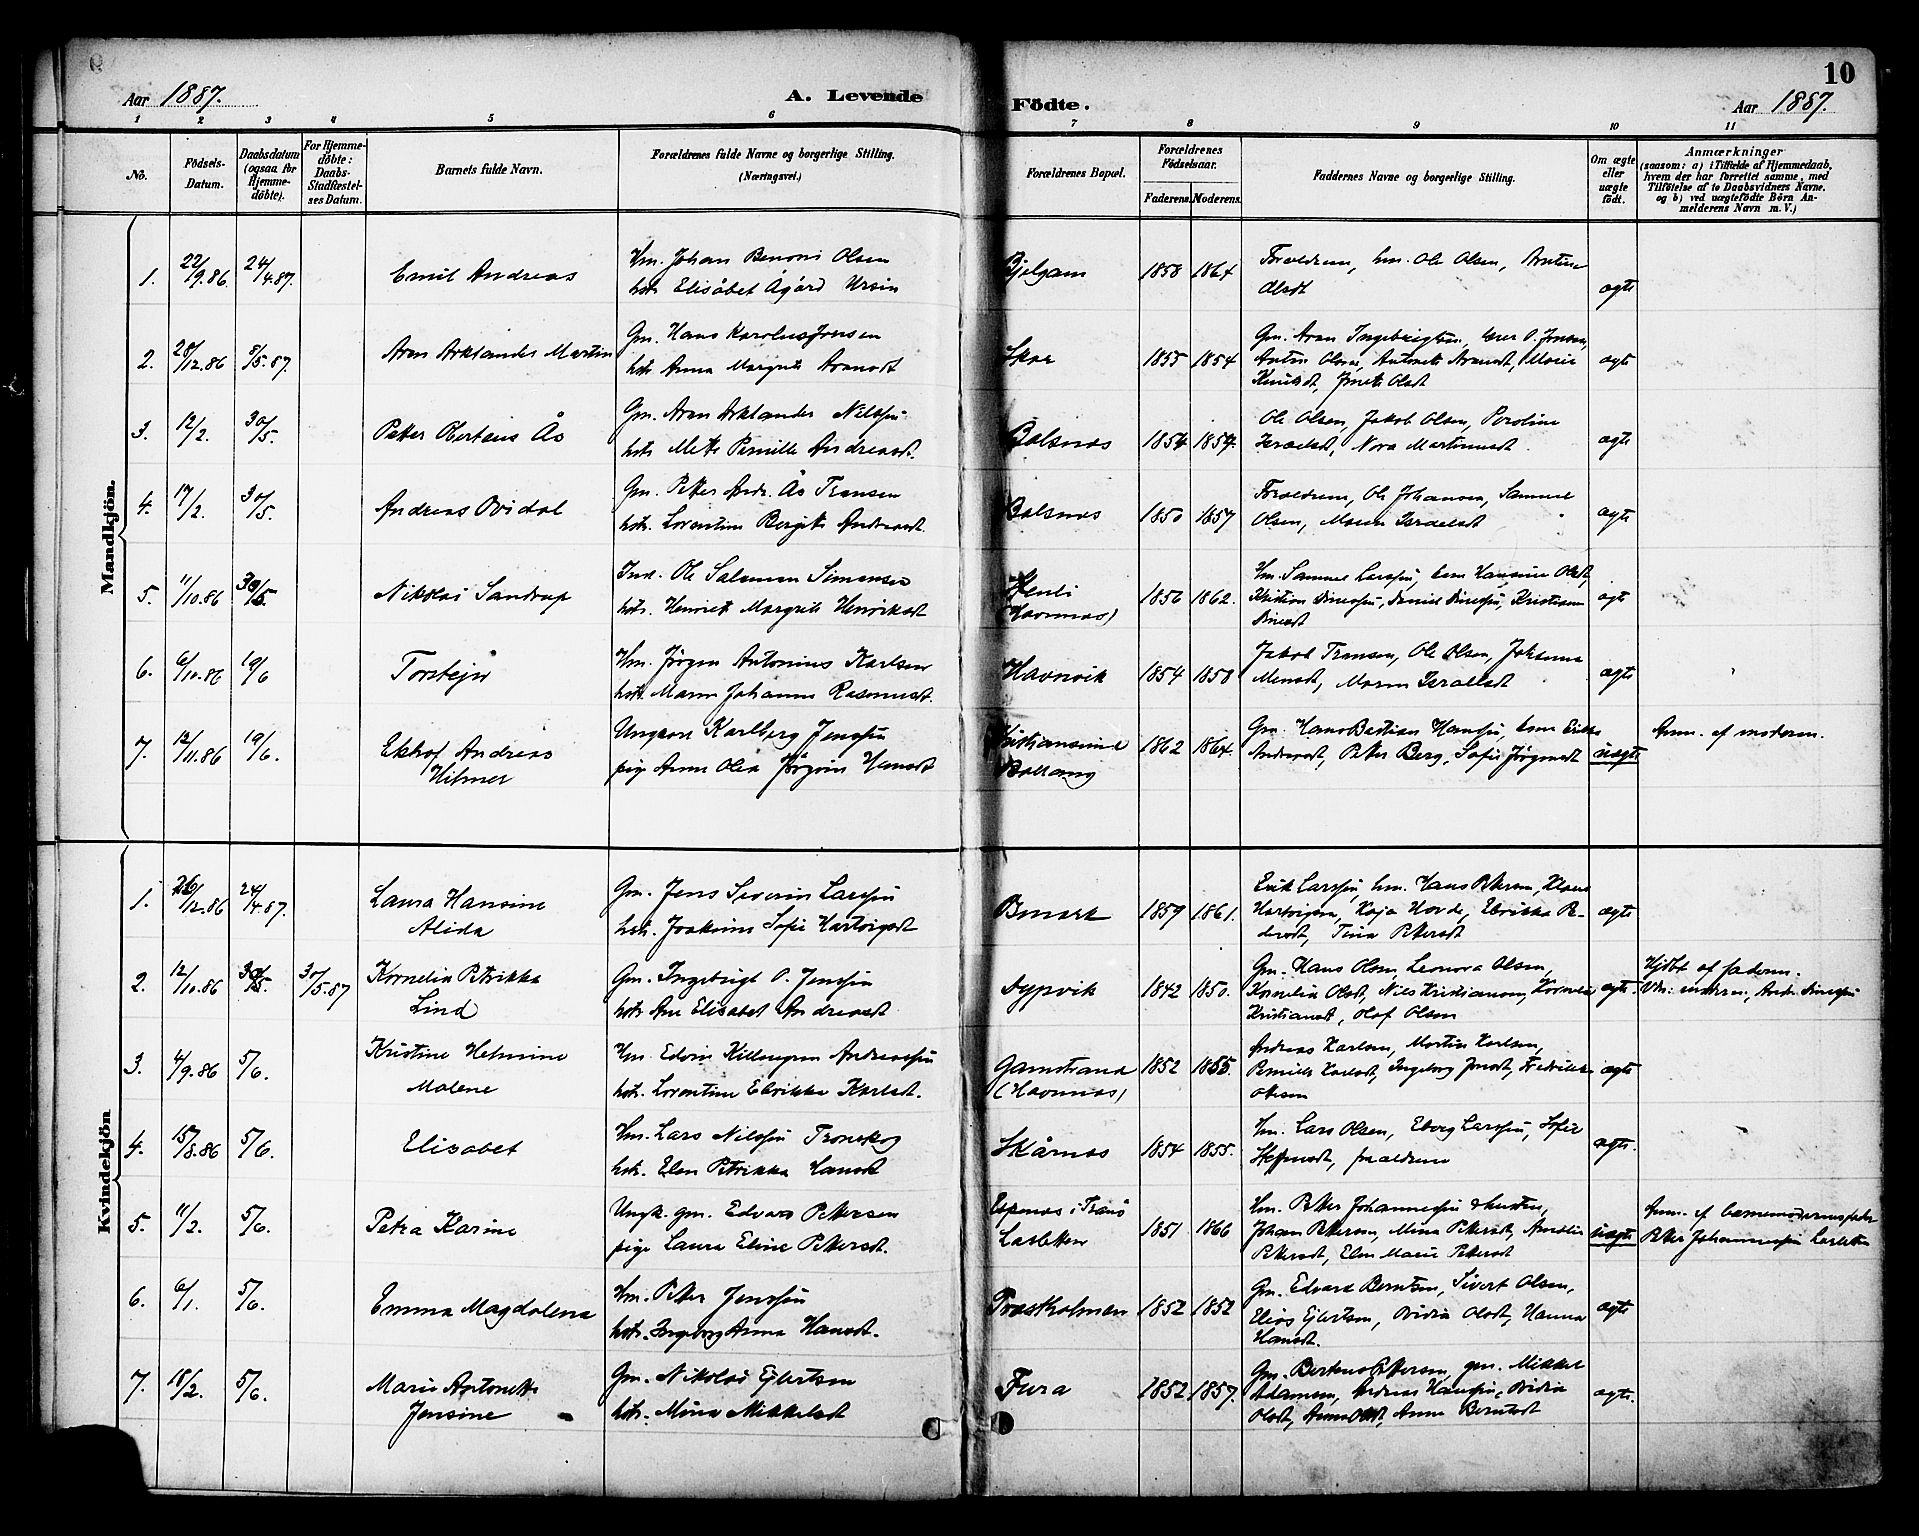 10
Aar 1887. A. Levende Födte. Aar 1887.
1 2 3 4 5 6 7 8 9 10 11
No.
Födsels-
Datum.
Daabsdatum
(ogsaa for
Hjemme-
döbte).
For Hjemme-
döbte:
Daabs-
Stadfæstel-
ses Datum.
Barnets fulde Navn.
Forældrenes fulde Navne og borgerlige Stilling.
(Næringsvei.)
Forældrenes Bopæl.
Forældrenes
Födselsaar.
Faderens. Moderens.
Faddernes Navne og borgerlige Stilling.
Om ægte
eller
uægte
födt.
Anmærkninger
(saasom: a) i Tilfælde af Hjemmedaab,
hvem der har forrettet samme, med
Tilföielse af to Daabsvidners Navne,
og b) ved uægtefödte Börn An-
melderens Navn m.V.)
Mandkjön.
1. 22/9.86 24/4.87. Emil Andreas
Hm. Johan Benoni Olsen
hstr. Elisabet Ågård Ursin
1858 1864
Forældrene, hm. Ole Olsen,
Olsdt
ægte
2. 28/12.86 8/5.87. Aron Arklander Martin
Gm. Hans Karolus Jensen
hstr. Anna Margrete Aronsdt
Skar 1855 1854
Gm. Aron Ingebrigtsen, P. Jensen,
Anton Olsen, Antonette Aronsdt, Marie
Knutsdt, Olsdt
ægte
3. 12/2. 30/5. Petter Obertaus Ås
Gm. Aron Arklander Nilssen
hstr. Mette Pernille Andreasdt.
Balsnes 1854 1854.
Ole Olsen, Jakob Olsen, Peroline
Israelsdt, Nora Martinusdt
ægte
4. 17/2. 30/5. Andreas Ovidal
Gm. Petter Andr. Ås Transen
hstr. Lorentine Bergitte Andreasdt.
Balsnes 1850 1857
Forældrene, Ole Johansen, Samuel
Olsen, Maren Israelsdt
ægte
5. 11/10.86 30/5. Nikolai Sandrup
Ind. Ole Salamon Simonsen
hstr. Henriette Margrete Henriksdt
(Havnnes) 1856 1862.
Hm. Samuel Larssen, kone Hansine Olsdt,
Kristian Dinessen, Daniel Dinessen, Kristianne
Dinesdt
ægte
6. 6/10.86 19/6 Torstein
Hm. Jørgen Antonius Karlsen
hstr. Maren Johanna Rasmusdt.
Havnvik 1854 1858
Jakob Transen, Ole Olsen, Johanna
Monsdt, Maren Israelsdt
ægte
7. 12/11.86 19/6. Ekhof Andreas
Hilmer
Ungkarl Karlberg Jenssen
pige Anne Olea Jørgine Hansdt
Kristiansund
1862 1864.
Gm. Hans Bastian Hanssen, kone Erikka
Andreasdt, Petter Berg, Sofie Jørgensdt
uægte
Anm. af moderen.
Kvindekjön
1. 26/12.86 24/4.87. Laura Hansine
Alida
Gm. Jens Severin Larssen
hstr. Joakime Sofie Hartvigsdt
1859 1861.
Erik Larssen, hm. Hans Petersen, Klaus
Hartvigsen, Kaja Hovde, Elvrikka Pe-
dersdt, Tina Pettersdt
ægte
2. 12/10.86 30/5. 30/5.87 Kornelia Petrikka
Lind
Gm. Ingebrigt O. Jenssen
hstr. Ane Elisabet Andreasdt
Dypvik 1842 1850.
Gm. Hans Olsen, Leonora Olsen,
Kornelia Olsdt, Nils Kristiansen, Kornelia
Kristiansdt, Olaf Olsen
ægte.
Hjdbt af faderen.
Vdn: moderen, Andr. Dinessen
3. 4/9.86 5/6. Kristine Helmine
Malene
Hm. Edvin Killengren Andreassen
hstr. Lorentine Elvrikka Karlsdt.
Gamstrand
(Havnnes)
1852 1855.
Andreas Karlsen, Martin Karlsen,
Pernille Karlsdt, Ingeborg Jensdt, Fredrikke
Olsen
ægte
4. 15/8.86 5/6. Elisabet
Hm. Lars Nilssen Tronskog
hstr. Elen Petrikka Hansdt
Skårnes 1854 1855.
Hm. Lars Olsen, Eberg Larssen, Sofie
Steffensdt, forældrene
ægte.
5. 11/2. 5/6. Petra Karine
Ungk. gm. Edvard Pettersen
pige Laura Eline Pettersdt.
Espenes i Tranø
Lasletten
1851 1866
Hm. Petter Johannessen & hustru,
Johan Pettersen, Mina Pettersdt, Amalie
Pettersdt, Elen Marie Pettersdt
uægte
Anm. af barnemoderens fader
Petter Johannessen Lasletten
6. 6/1. 5/6. Emma Magdalena
Hm. Petter Jenssen
hstr. Ingeborg Anna Hansdt.
Træstholmen 1852 1852
Gm. Edvard Berntsen, Sivert Olsen,
Elias Ejlertsen, Ovidia Olsdt, Hanna
Hansdt.
ægte
7. 18/2. 5/6. Marie Antonette
Jensine
Gm. Nikolai Ejlertsen
hstr. Mina Mikkelsdt
Fura 1852 1857.
Gm. Berteus Pettersen, gm. Mikkel
Adamsen, Andreas Hanssen, Ovidia
Olsdt, Anna Olsdt, Anne Berntsdt
ægte.